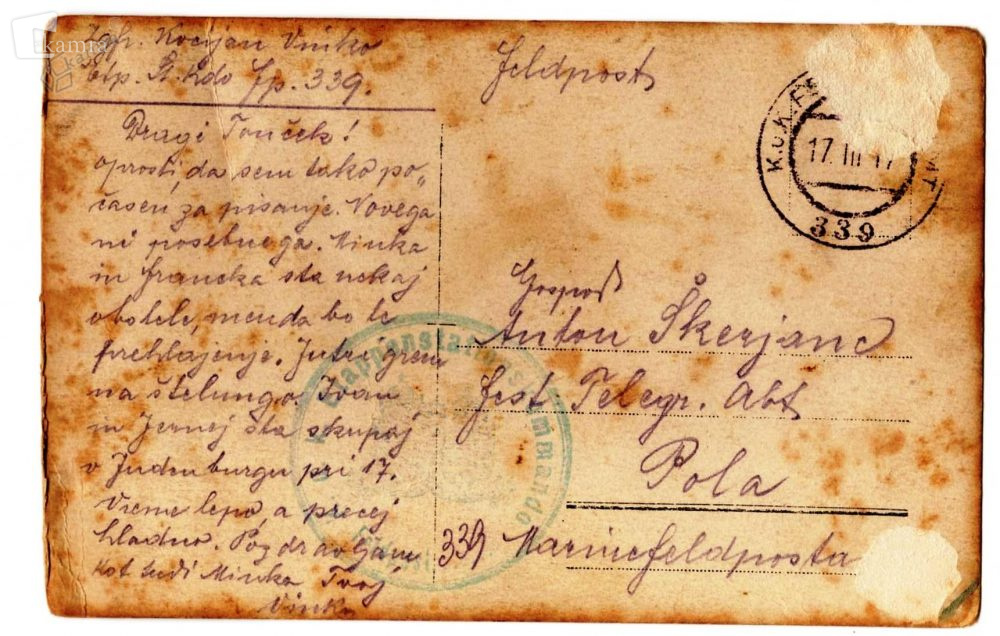 kamra
Zgf. Kocijan Vinko
Etp. St. Kdo Fp. 339.
Dragi Tonček!
oprosti, da sem tako po„
časen za pisanje. Novega
ni posebnega. Minka
in Francka sta nekaj
obolele, menda bo le
prehlajenje. Jutri grem
na štelungo. Ivan
in Jernej sta skupaj
v Judenburgu pri 17.
Vreme lepo a precej
hladno. Pozdravljam
kot tudi Minka Tvoj
Vinko
Feldpost
K.u.K. FE
17. III 17
339
Gospod
Anton Škerjanc
Fest Telegr. Abt
Pola
339 Marinefeldposta
K. Etappenstations-Kommando